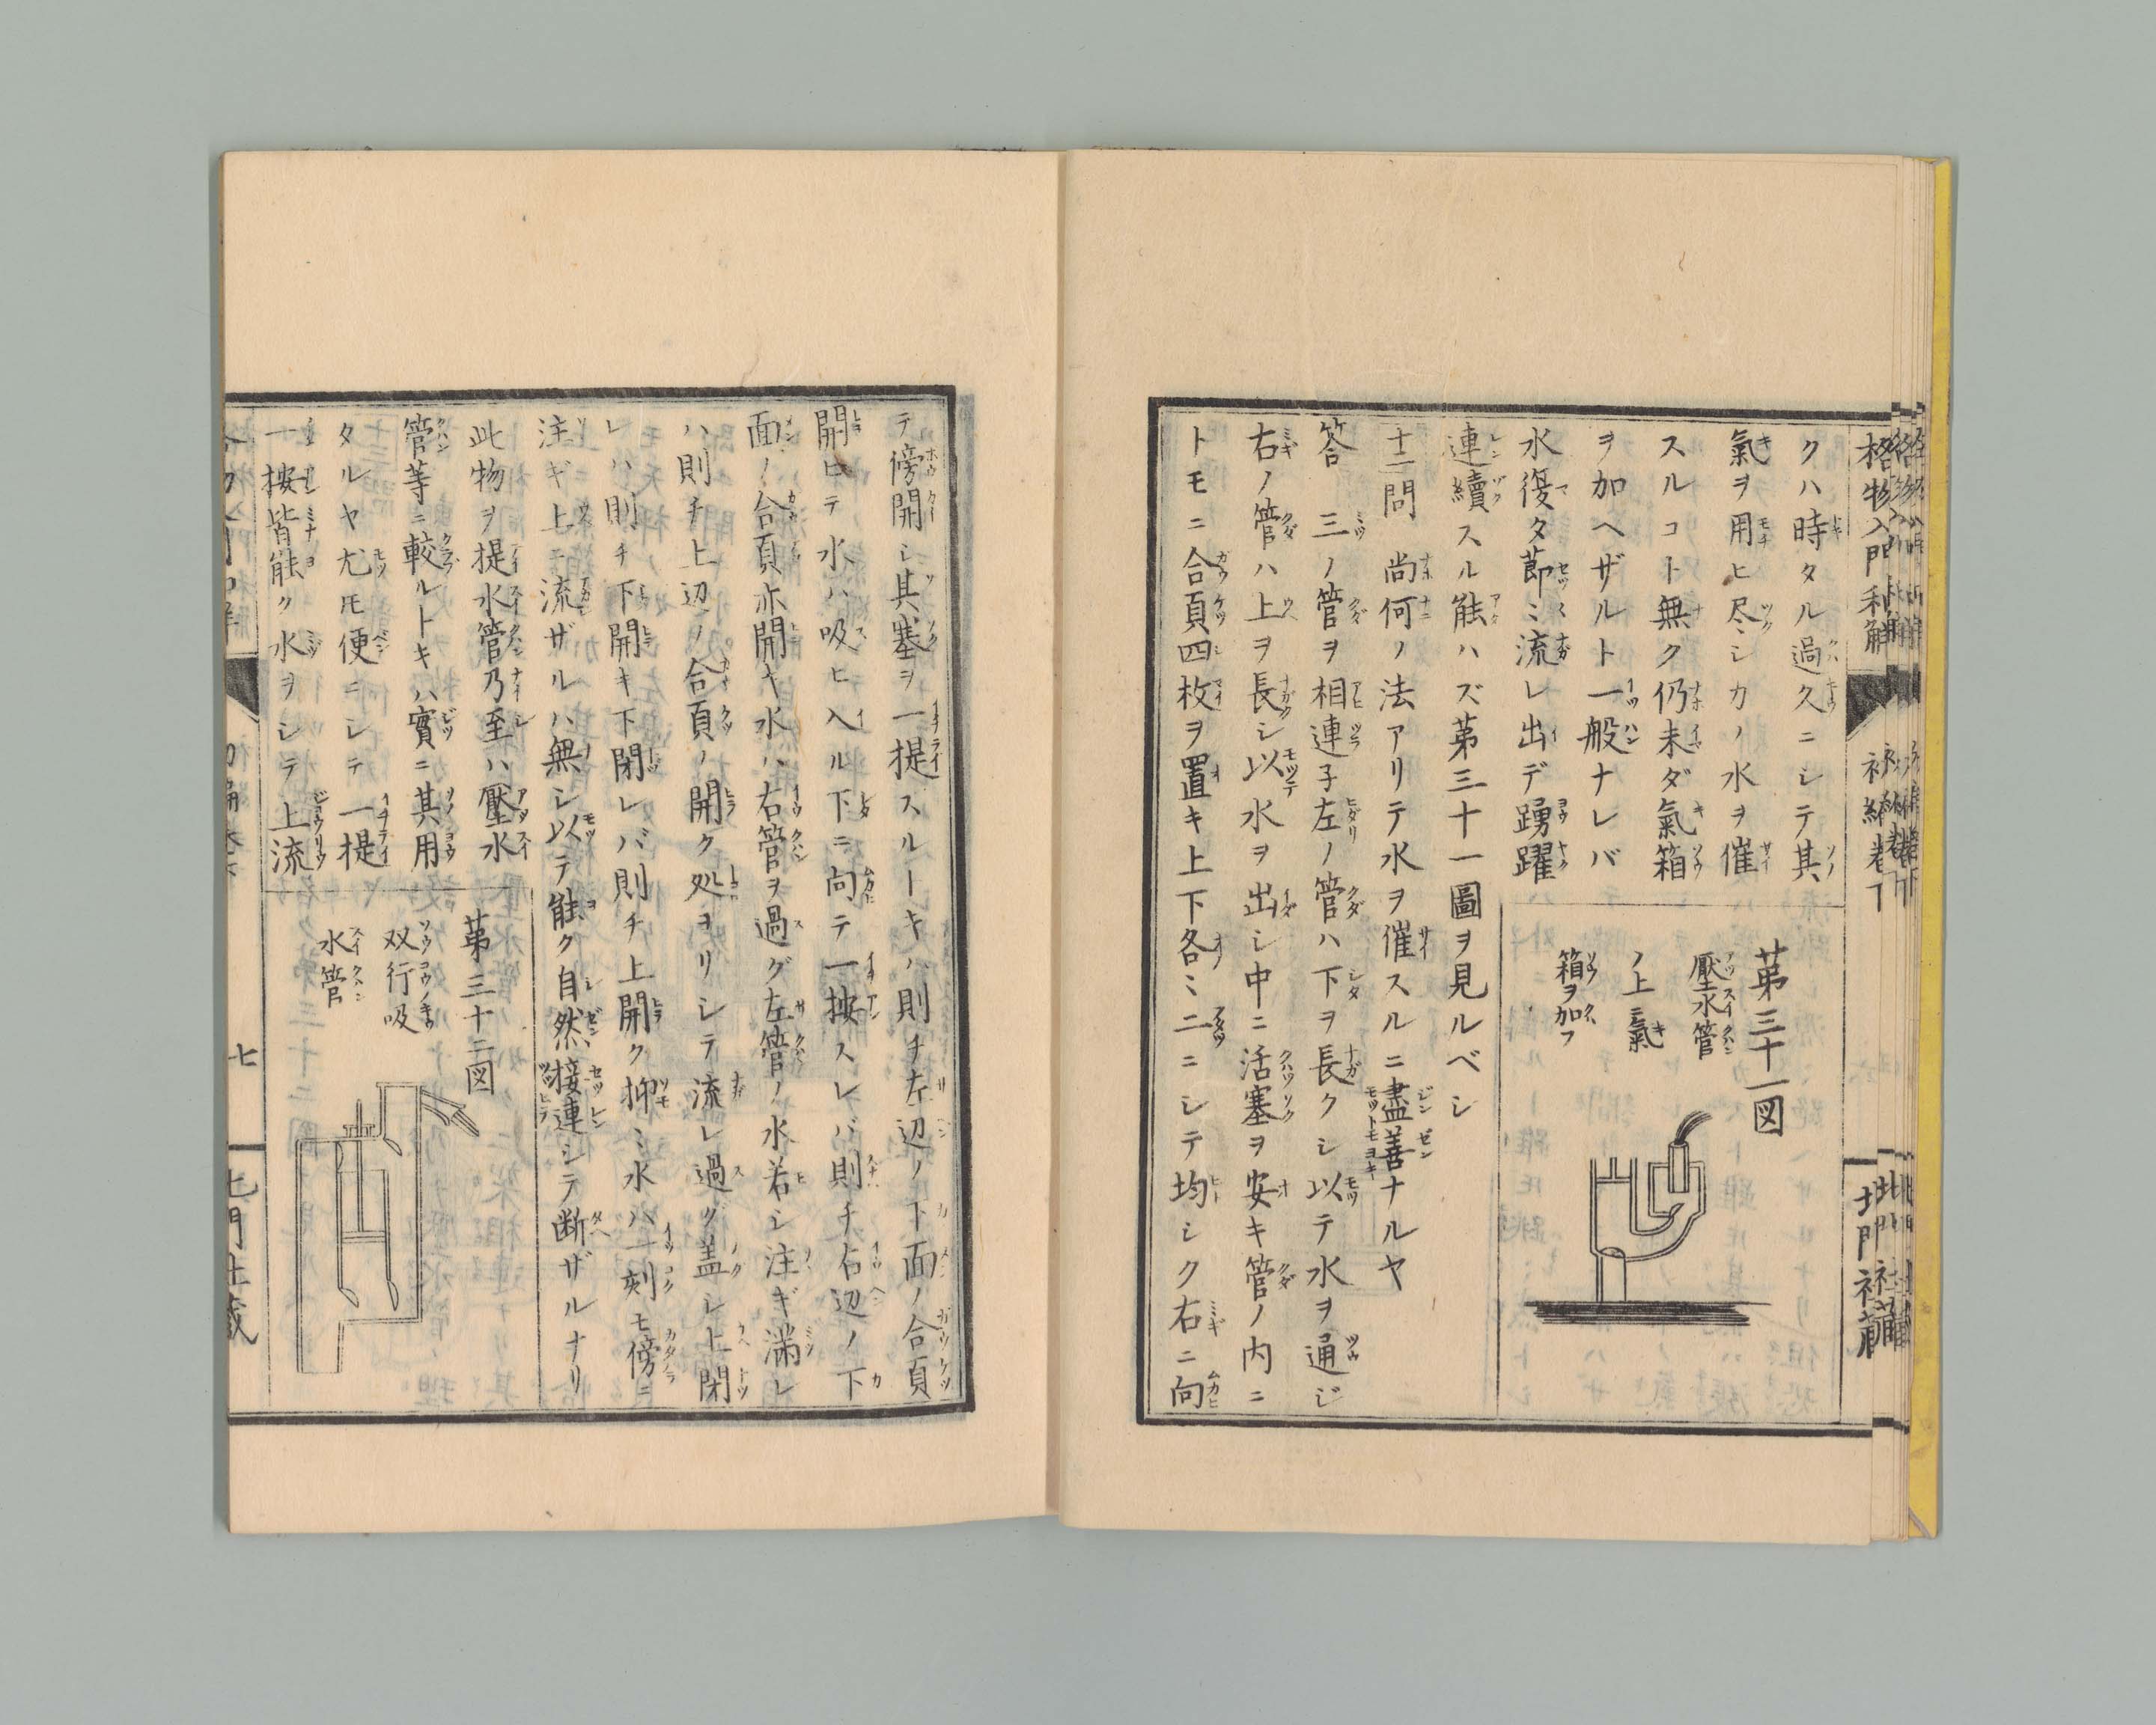 格物入門和解
初編巻下
北門社蔵
クハ時タル過久ニシテ其
氣ヲ用ヒ尽シカノ水ヲ催
スルコト無ク仍未ダ氣箱
ヲ加ヘザルト一般ナレバ
水復タ莭〻流レ出デ踴躍
連續スル能ハズ第三十一圖ヲ見ルベシ
第三十一図
壓水管
ノ上ニ氣
箱ヲ加フ
十二問 尚何ノ法アリテ水ヲ催スルニ盡善ナルヤ
答 三ノ管ヲ相連子左ノ管ハ下ヲ長クシ以テ水ヲ通ジ
右ノ管ハ上ヲ長シ以水ヲ出シ中ニ活塞ヲ安キ管ノ内ニ
トモニ合頁四枚ヲ置キ上下各〻二ニシテ均シク右ニ向
テ傍開シ其塞ヲ一提スルーキハ則チ左辺ノ下面ノ合頁
開ヒテ水ハ吸ヒ入ル下ニ向テ一按スレバ則チ右辺ノ下
面ノ合頁亦開キ水ハ右管ヲ過グ左管ノ水若シ注ギ満レ
ハ則チ上辺ノ合頁ノ開ク処ヲリシテ流レ過グ盖シ上閉
レハ則チ下開キ下閉レバ則チ上開ク抑〻水ハ一刻モ傍ニ
注ギ上ニ流ザルハ無シ以テ能ク自然接連シテ断ザルナリ
此物ヲ提水管乃至ハ壓水
管等ニ較ルトキハ實ニ其用
タルヤ尤モ便ニシテ一提
一按皆能ク水ヲシテ上流
第三十二図
双行吸
水管
七
北門社蔵